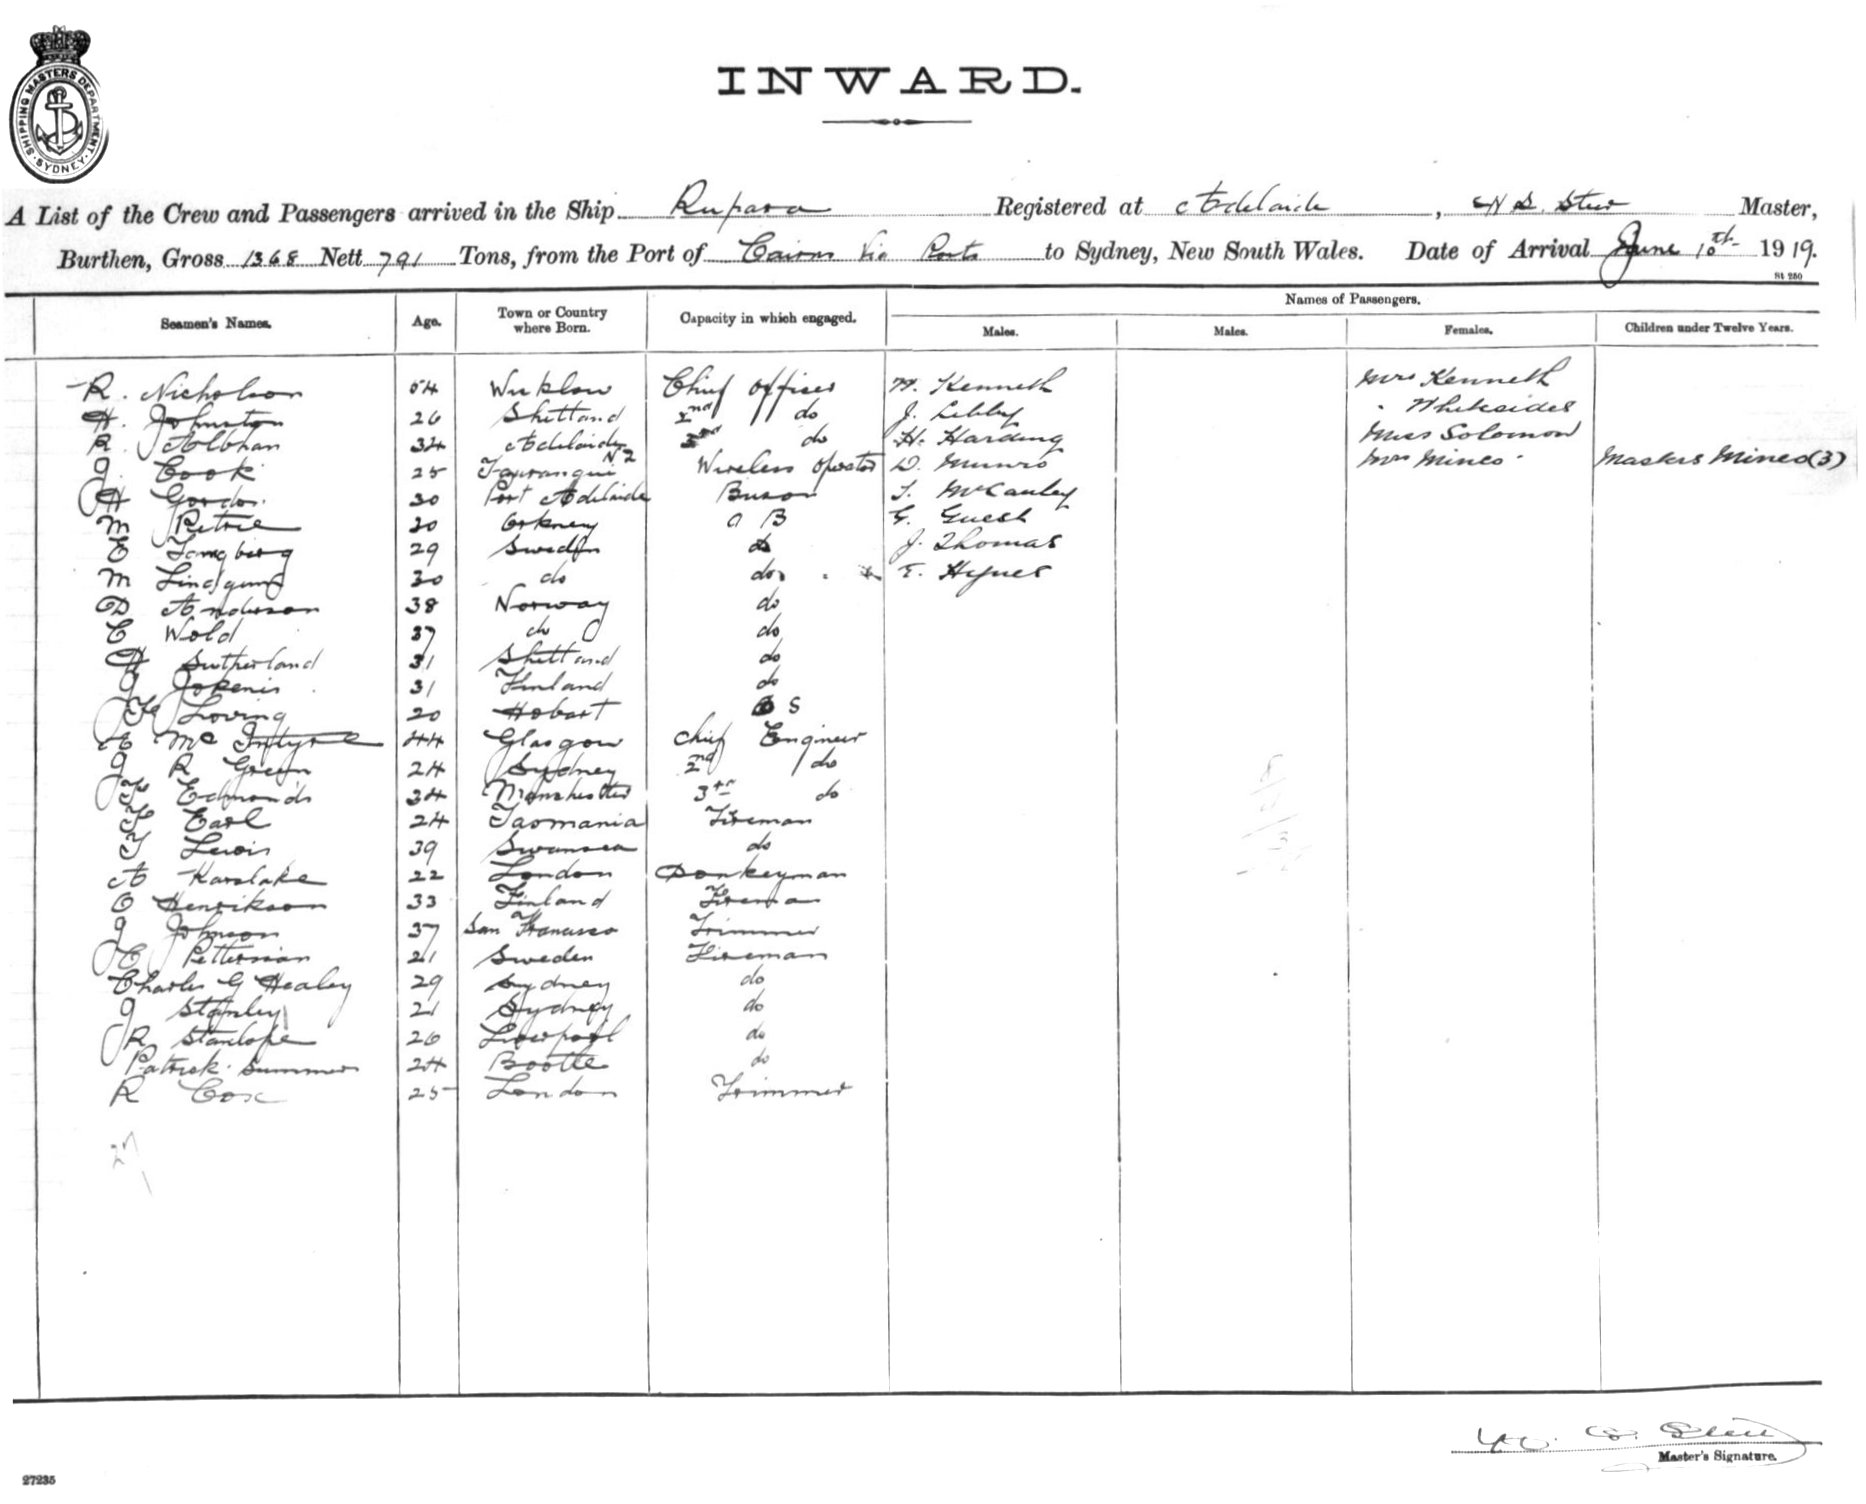 SHIPPING MASTERS DEPARTMENT. SYDNEY.
INWARD.
A List of the Crew and Passengers arrived in the Ship Rupara Registered at Adelaide, Master,
Burthen, Gross 1368 Nett 791 Tons, from the Port of Cairns Via Ports to Sydney, New South Wales. Date of Arrival June 10th 1919.
St 250
Names of Passengers.
Seamen's Names. Age. Town or Country where Born. Capacity in which engaged. Males. Males. Females. Children under Twelve Years.
R. Nicholson 54 Wicklow Chief Officer W. Kenneth Mrs Kenneth
H. Johnston 26 Shetland 2nd do J. Libby " Whitesides
R. 34 Adelaide 3rd do H. Harding Miss Solomon
J. Cook 25 NZ Wireless Operator D. Munro Mrs Mineo Masters Mineo (3)
H Gordon 30 Port Adelaide Bosun T. McCauley
M Petrie 30 Orkney A B G. Guest
E 29 Sweden do J. Thomas
M 30 do do Hynes
D Anderson 38 Norway do
C Wold 37 do do
H Sutherland 31 Shetland do
J 31 Finland do
20 Hobart O S
A McIntyre 44 Glasgow Chief Engineer
J R Green 24 Sydney 2nd do
F Edmonds 34 Manchester 3rd do
F Earl 24 Tasmania Fireman
T Lewis 39 Swansea do
A Karslake 22 London Donkeyman
O Henrikson 33 Finland Fireman
J Johnson 37 San Francisco Trimmer
E Petterson 21 Sweden Fireman
Charles G Healey 29 Sydney do
J Stanley 21 Sydney do
R Stanlope 26 Liverpool do
Patrick Summer 24 Bootle do
R Cox 25 London Trimmer
27
Master's Signature.
27235